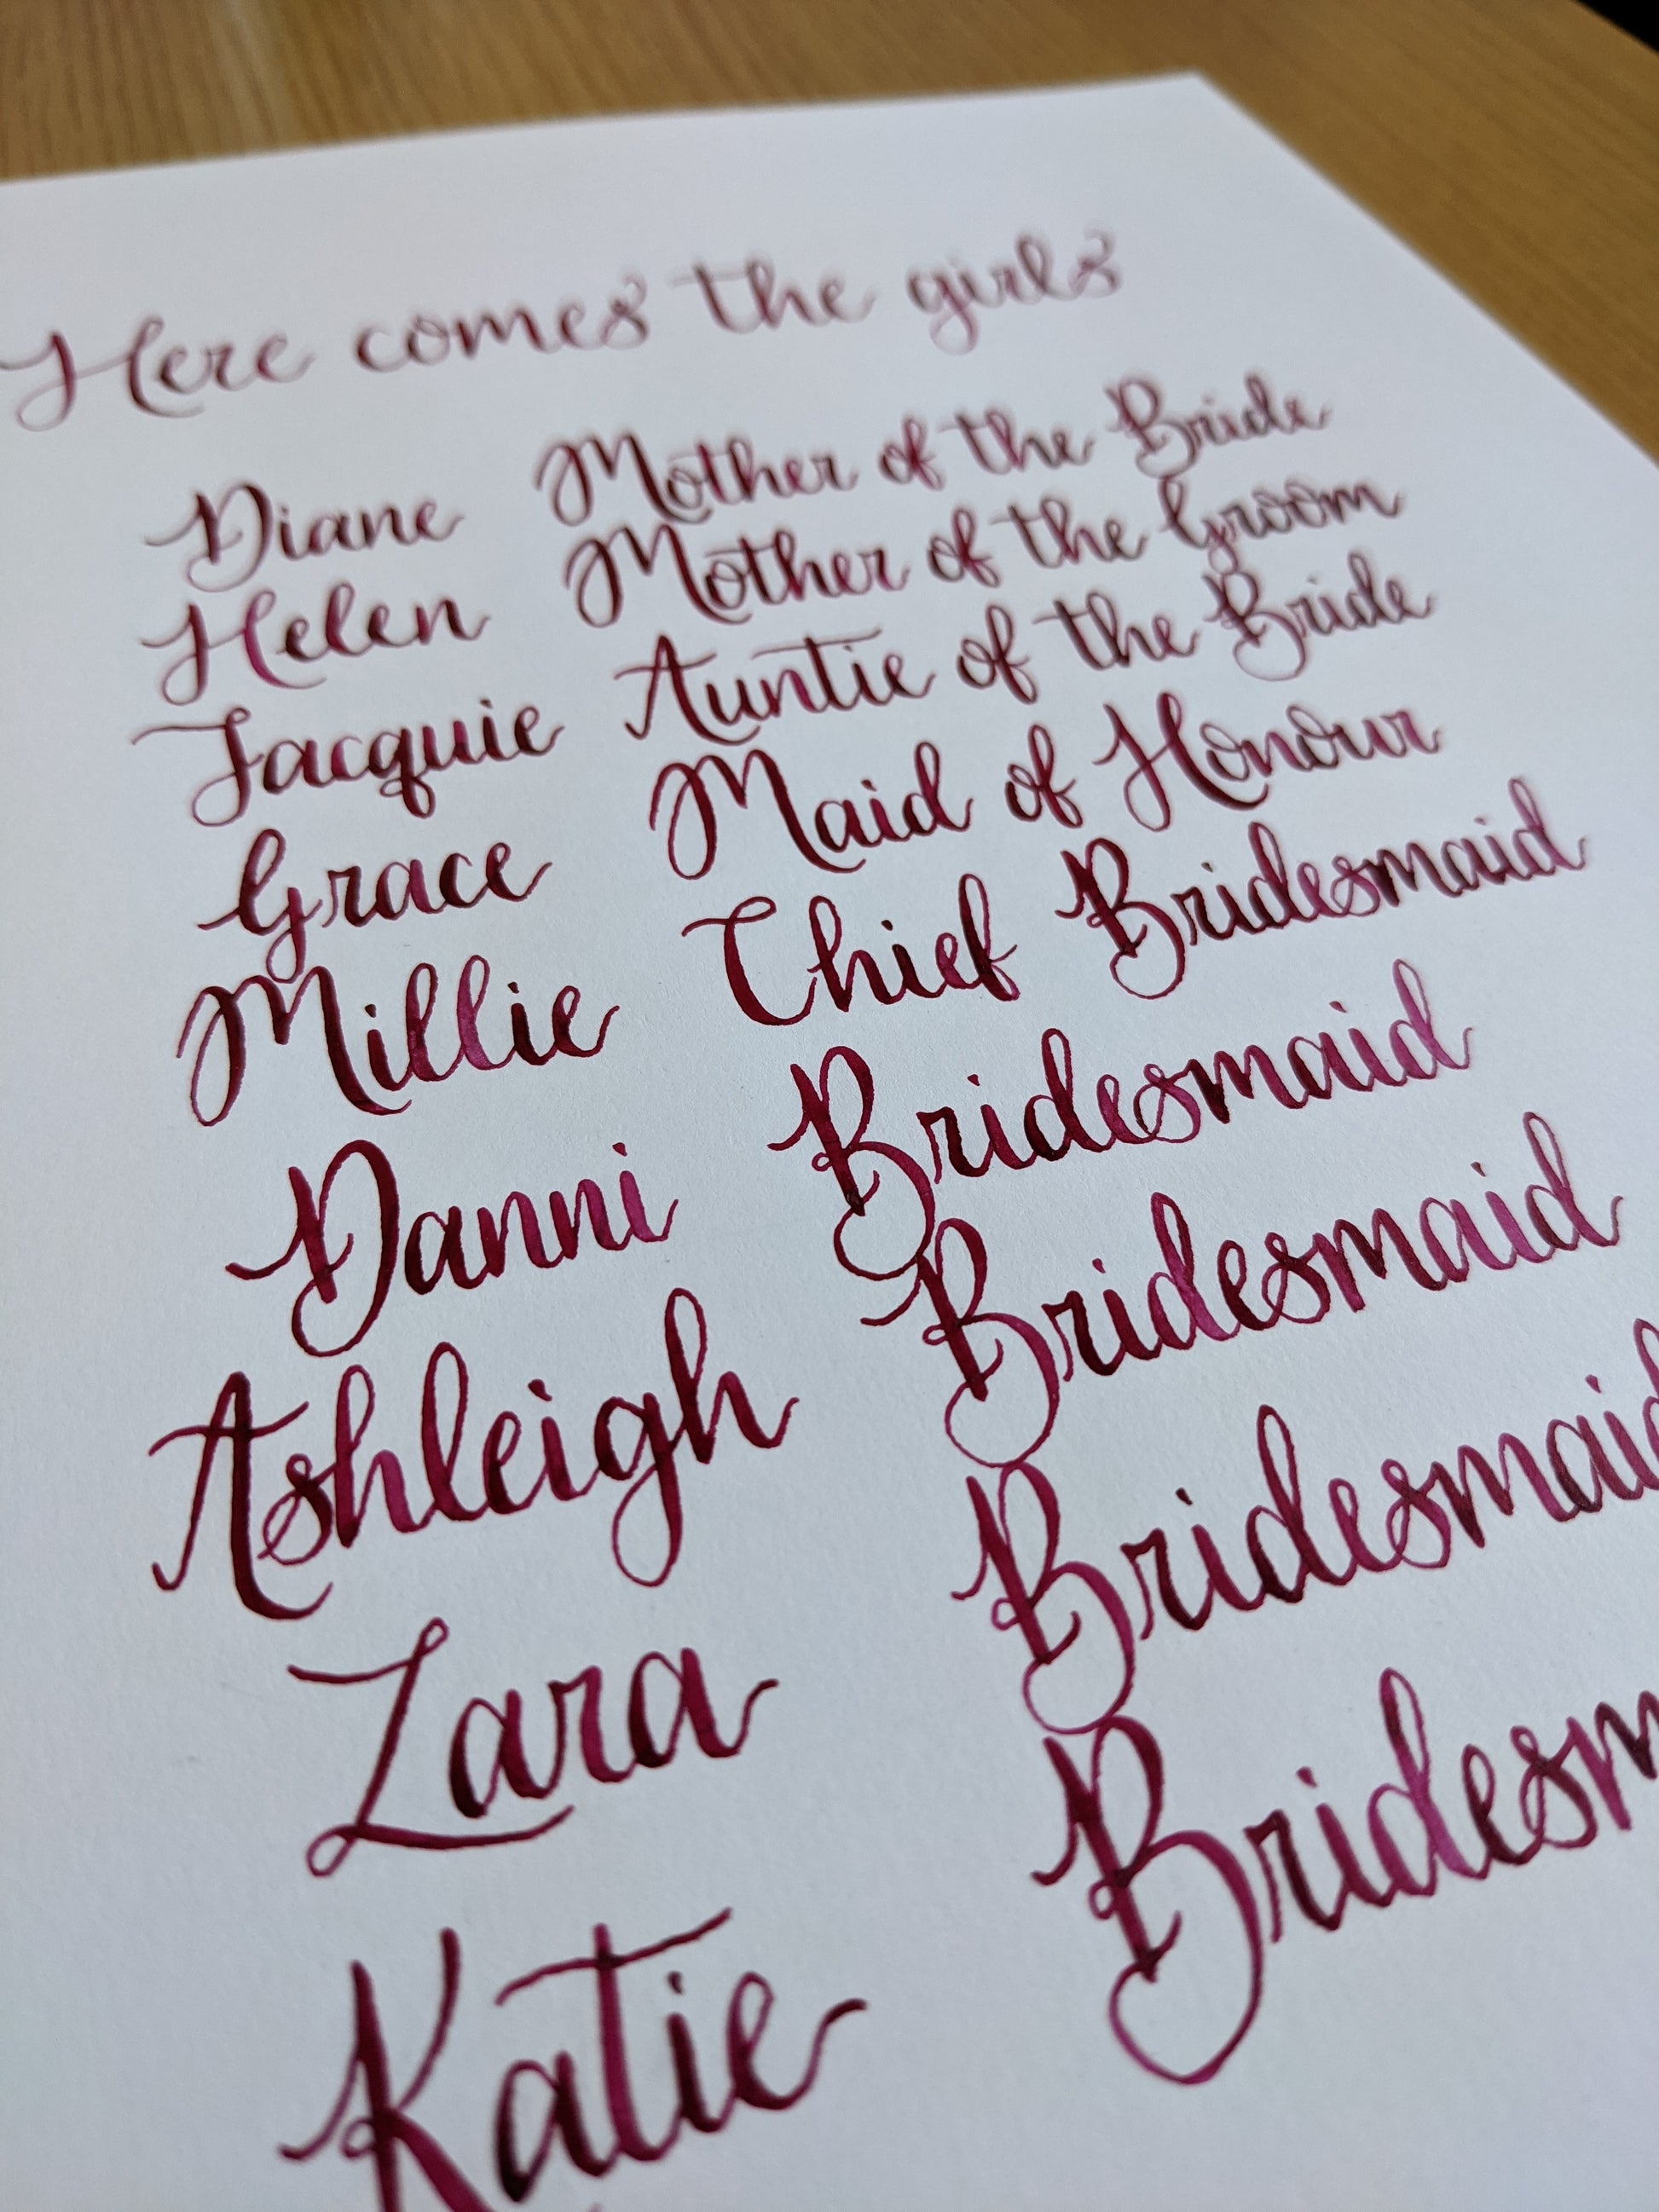 Here comes the girls
Diane Mother of the Bride
Helen Mother of the Groom
Jacquie Auntie of the Bride
Grace Maid of Honour
Millie Chief Bridesmaid
Danni Bridesmaid
Ashleigh Bridesmaid
Zara Bridesmaid
Katie Bridesm